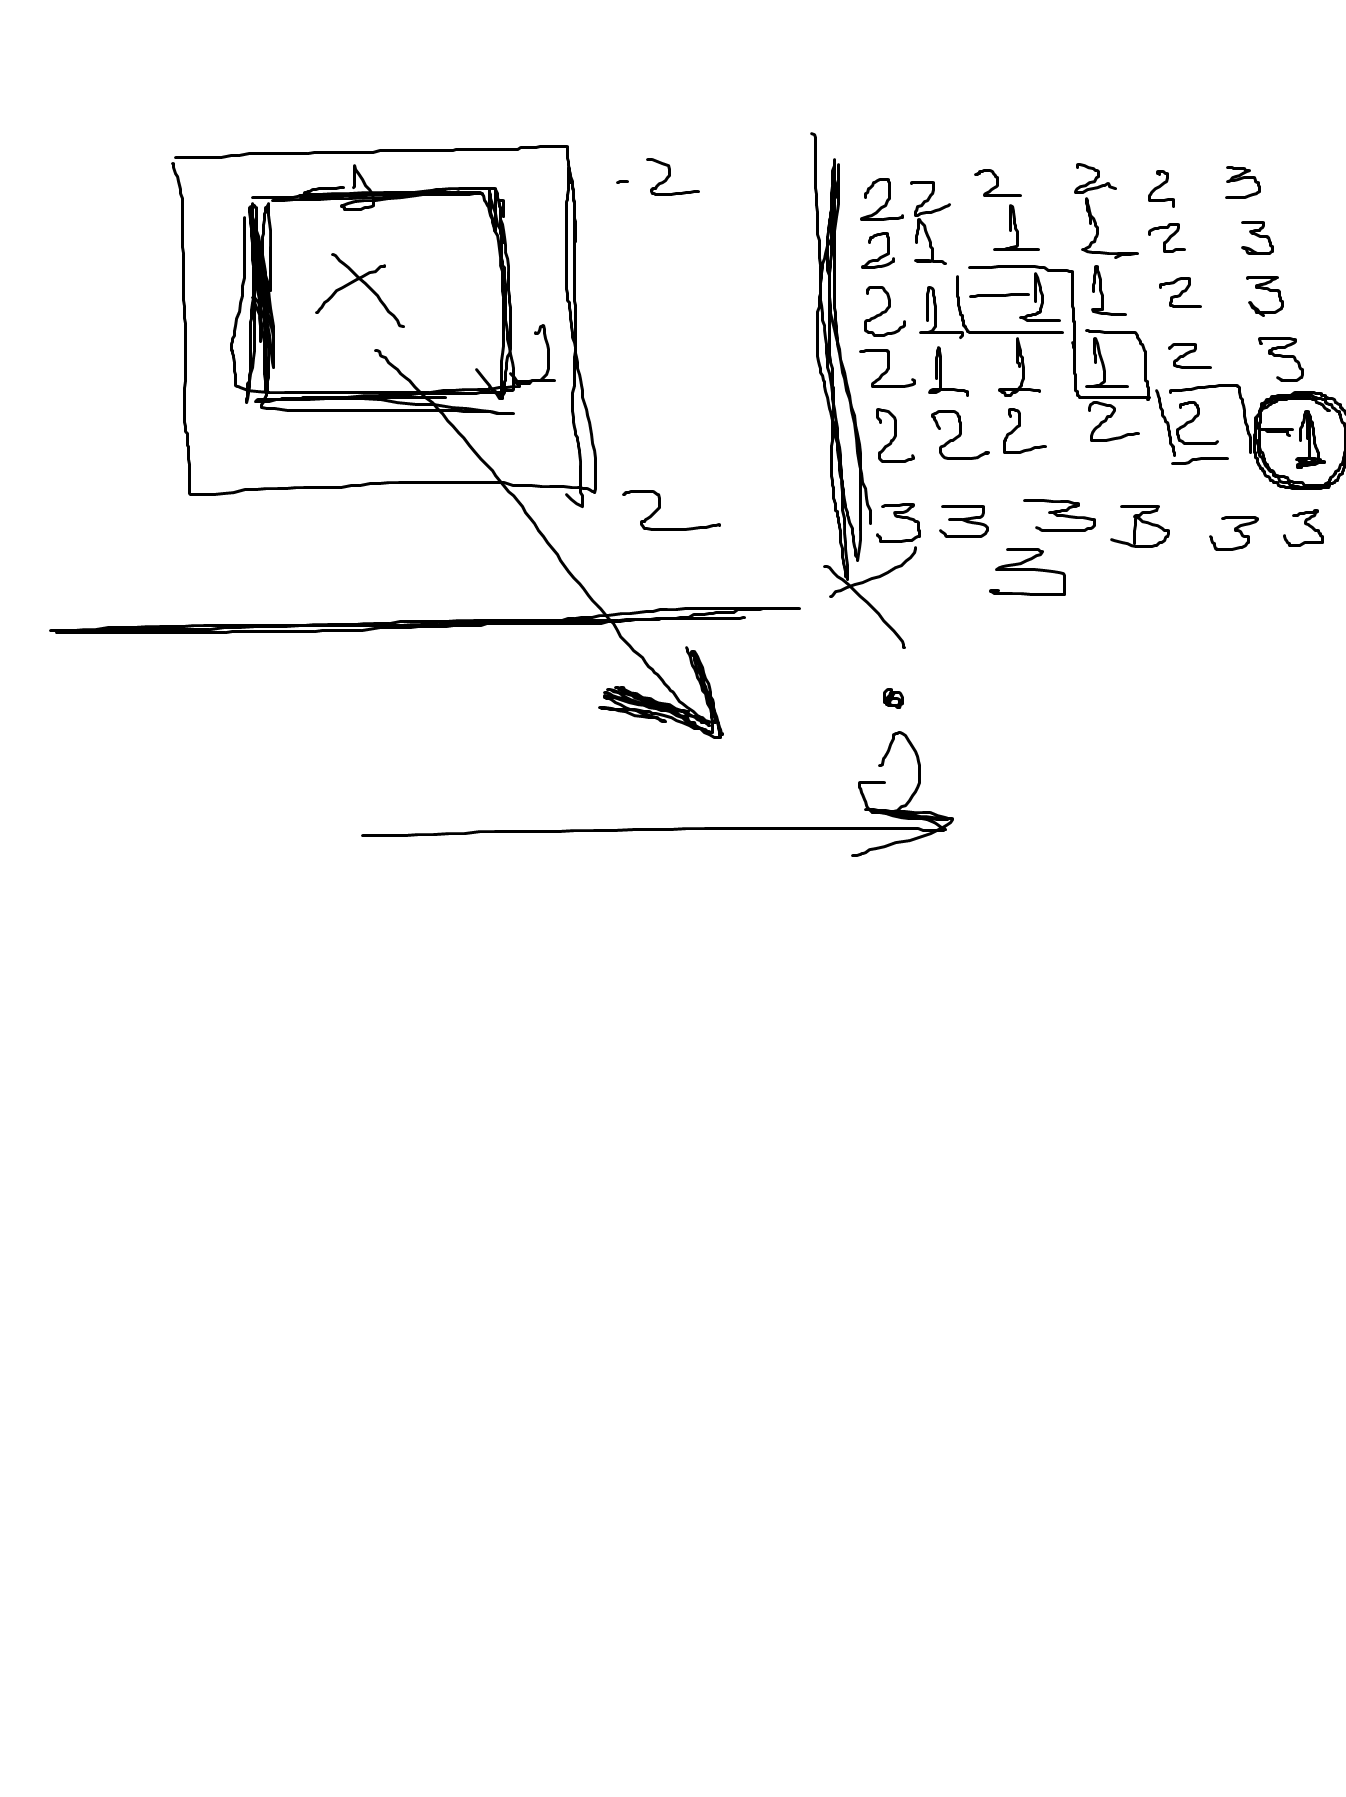 -2
2
2 2 2 2 2 3
2 1 1 1 2 3
2 1 -1 1 2 3
2 1 1 1 2 3
2 2 2 2 2 -1
3 3 3 3 3 3
3